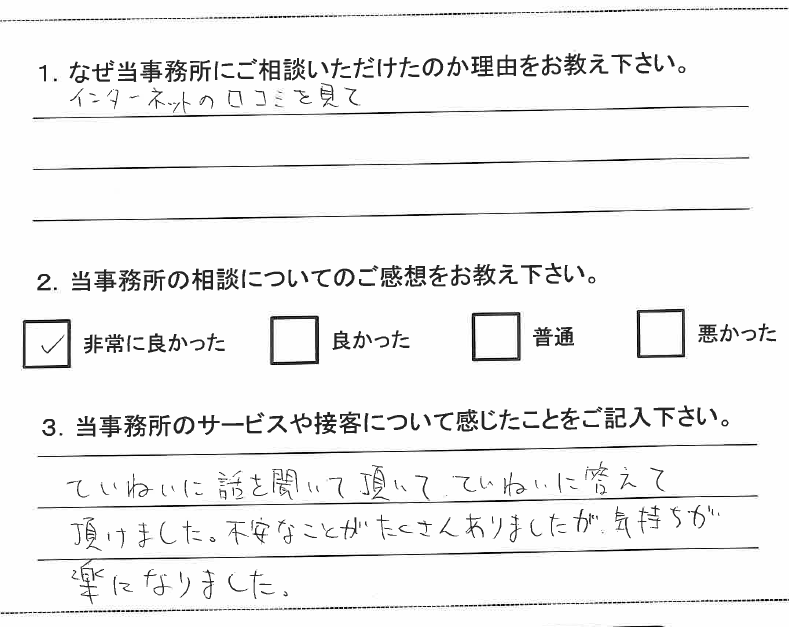 1. なぜ当事務所にご相談いただけたのか理由をお教え下さい。
インターネットの口コミを見て
2. 当事務所の相談についてのご感想をお教え下さい。
✓ 非常に良かった 良かった 普通 悪かった
3. 当事務所のサービスや接客について感じたことをご記入下さい。
ていねいに話を聞いて頂いて、ていねいに答えて
頂けました。不安なことがたくさんありましたが、気持ちが
楽になりました。